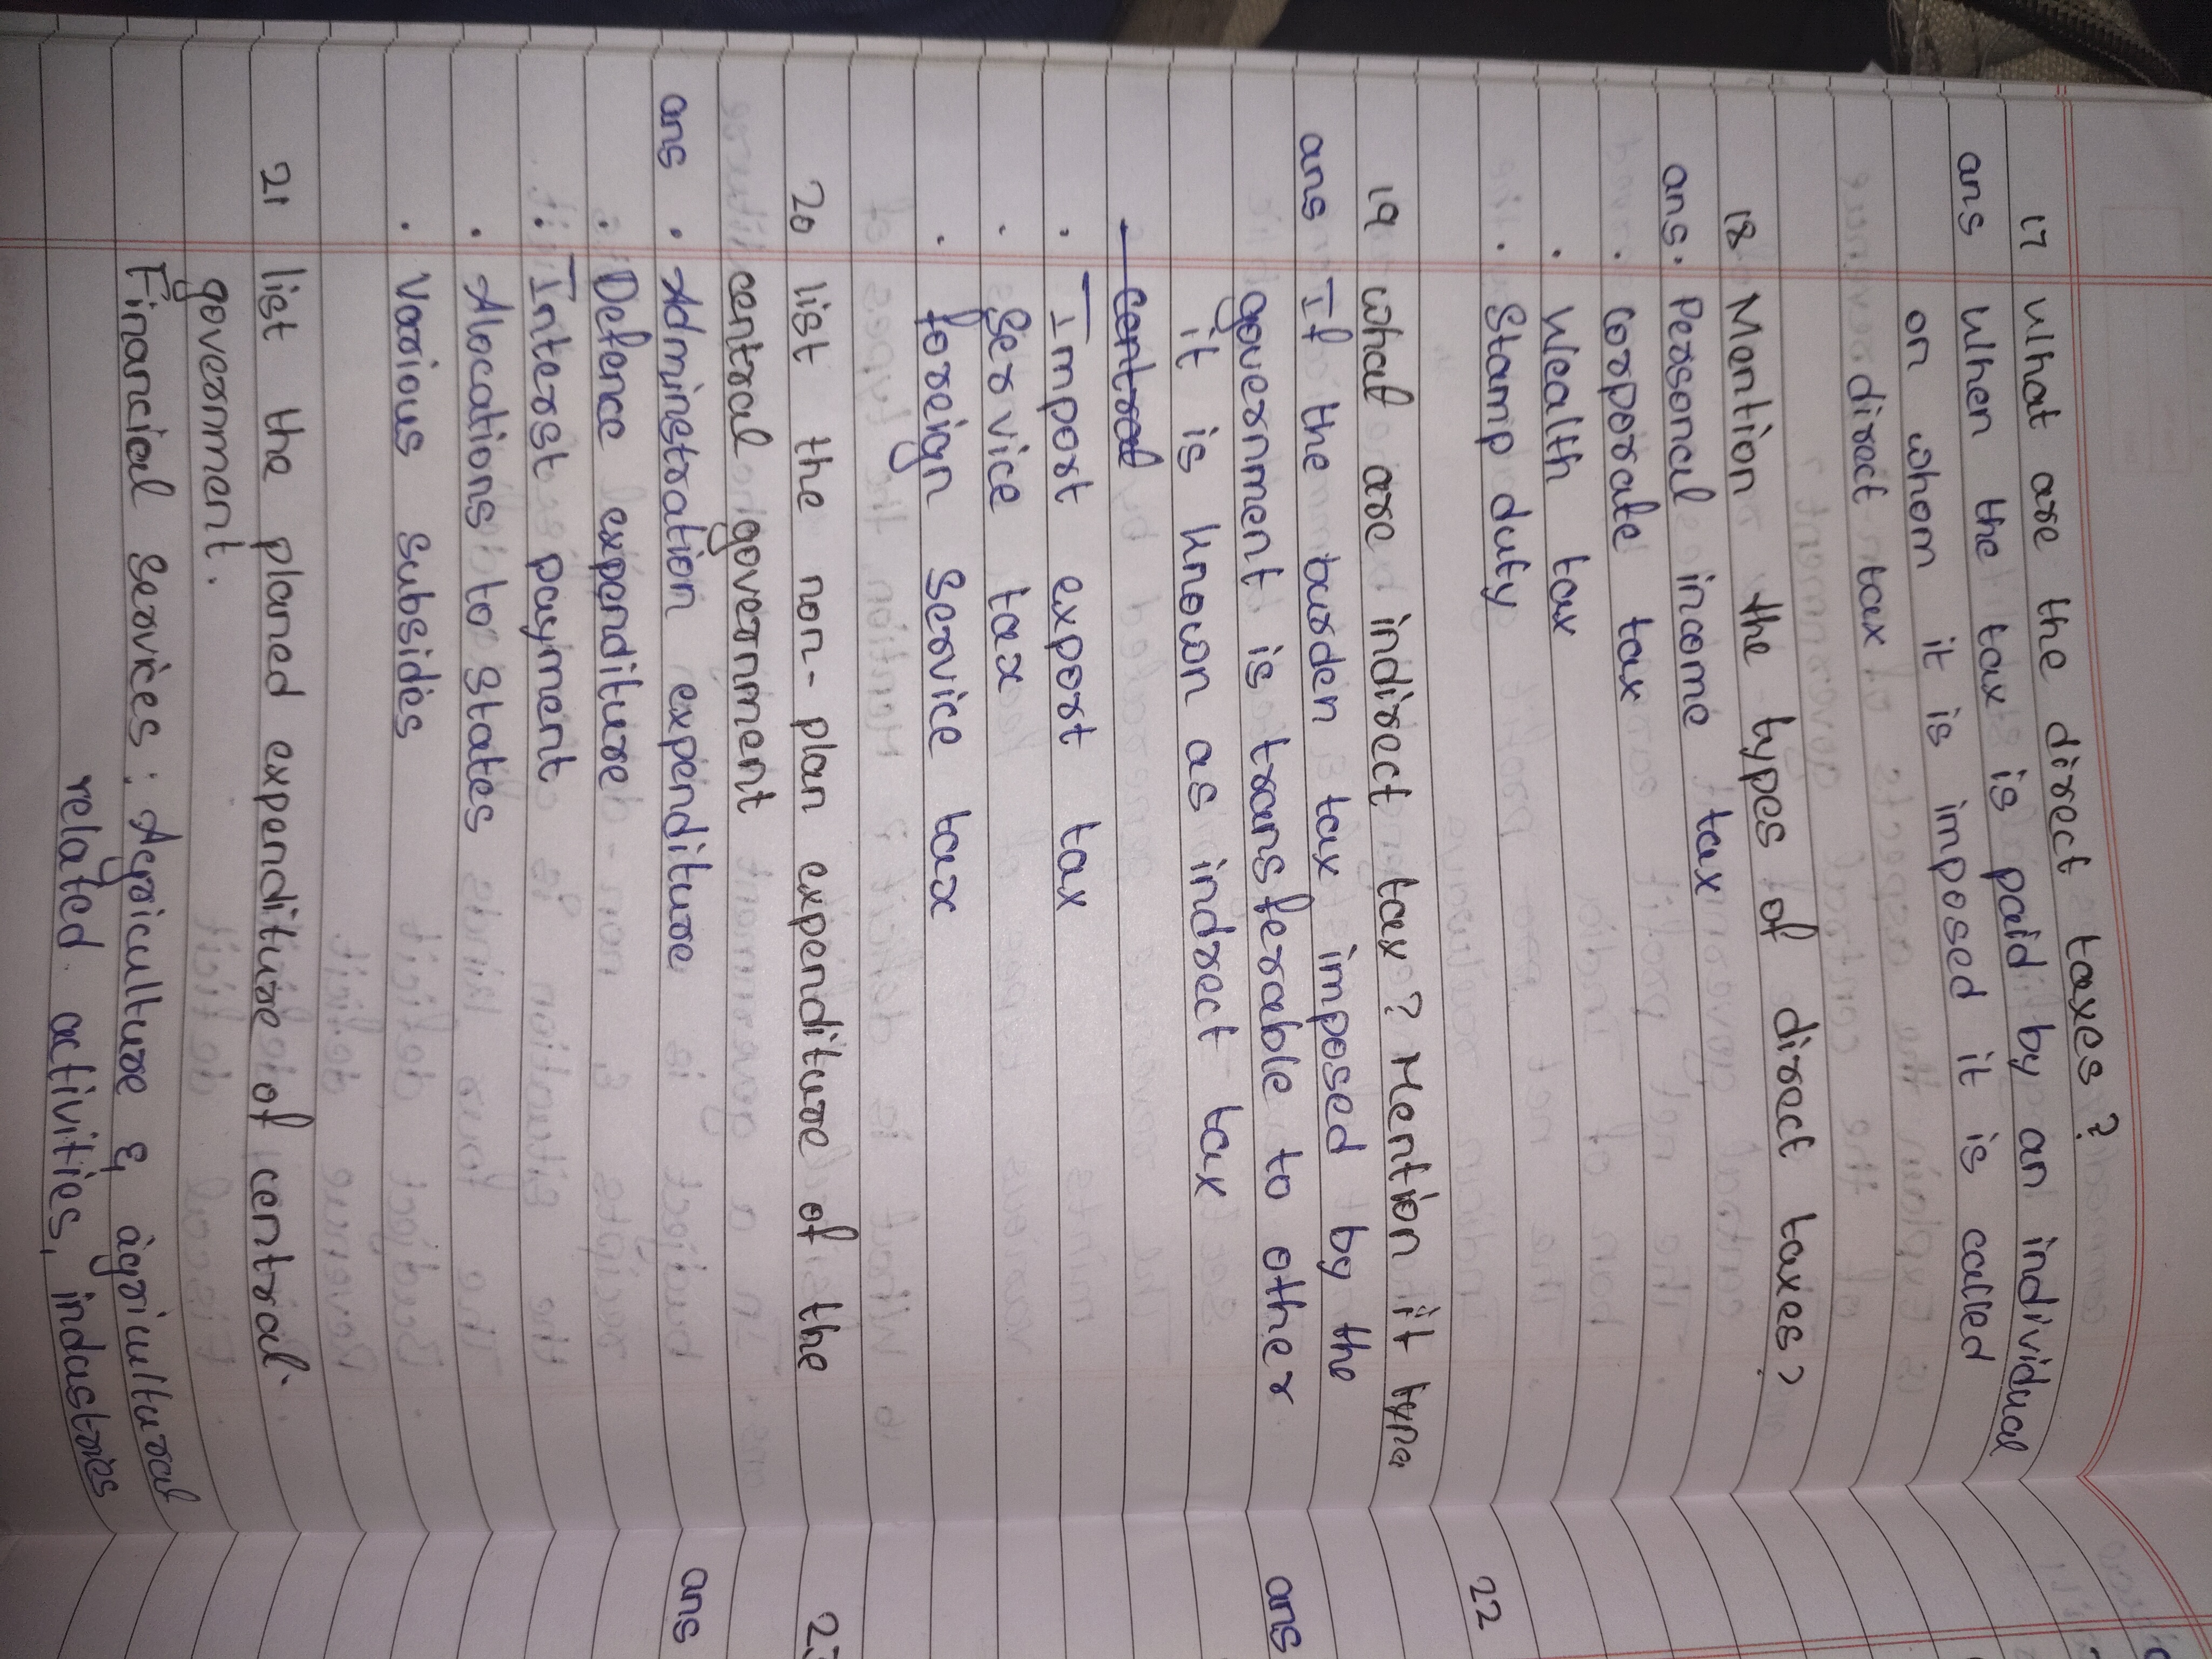 17 What are the direct taxes?
ans When the tax is paid by an individual
on whom it is imposed it is called
direct tax
18 Mention the types of direct taxes?
ans. Personal income tax
. Corporate tax
. Wealth tax
. Stamp duty
19 what are indirect tax? Mention it type
ans If the burden tax imposed by the
government is transferable to other
it is known as indrect tax
Central
. Import export tax
. Service tax
. foreign service tax
20 list the non-plan expenditure of the
central government
ans . Adminstration expenditure
. Defence expenditure
. Interst payment
. Alocations to states
. Various Subsides
21 list the planed expenditure of central
government.
Financial Services : Agriculture & agricultural
related activities, industries
22
ans
23
ans